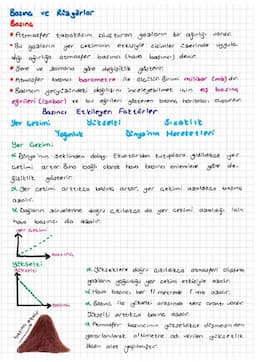 Basınç ve Rüzgârlar
Basınç
• Atmosfer tabakasını oluşturan gazların bir ağırlığı vardır.
• Bu gazların yer çekiminin etkisiyle cisimler üzerinde uygula
dığı ağırlığa atmosfer basıncı (hava basıncı) denir.
• Yere ve zamana göre değişiklik gösterir.
• Atmosfer basıncı barometre ile ölçülür. Birimi milibar (mb)dır.
• Basıncın yeryüzündeki dağılışını inceleyebilmek için eş basınç
eğrileri (izobar) ve bu eğrileri gösteren basınç haritaları
Basıncı Etkileyen Faktörler
Yer Çekimi Yükselti Sıcaklık
Yoğunluk Dünya'nın Hareketleri
Yer Çekimi
Dünya'nın şeklinden dolayı Ekvator'dan kutuplara gidildikçe yer
çekimi artar. Buna bağlı olarak hava basıncı enlemlere göre de-
ğişiklik gösterir.
Yer çekimi arttıkça basınç artar, yer çekimi azaldıkça basınç
azalır.
Dağların zirvelerine doğru çıkıldıkça da yer çekimi azaldığı için
hava basıncı da azalır.
yer çekimi
basınç
Yükselti
yükselti
basınç
Yükseklere doğru çıkıldıkça atmosferi oluşturan
gazların yoğunluğu yer çekimi etkisiyle azalır.
Hava basıncı her metrede 1 mb azalır.
Basınç ile yükselti arasında ters orantı vardır.
Yükselti arttıkça basınç azalır.
Atmosfer basıncının yükseldikçe düşmesinden
yararlanılarak altimetre adı verilen yükseklik
ölçen alet yapılmıştır.
basınç azalır